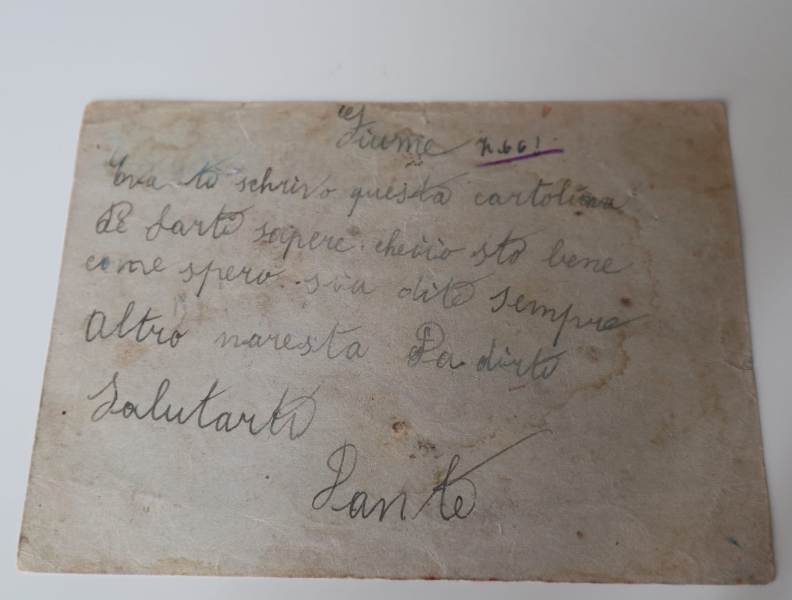 Fiume
Eva ti schrivo questa cartolina
Pe farti sapere cheiio sto bene
come spero sia dite sempre
altro naresta Da dirti
Salutarti
Dante